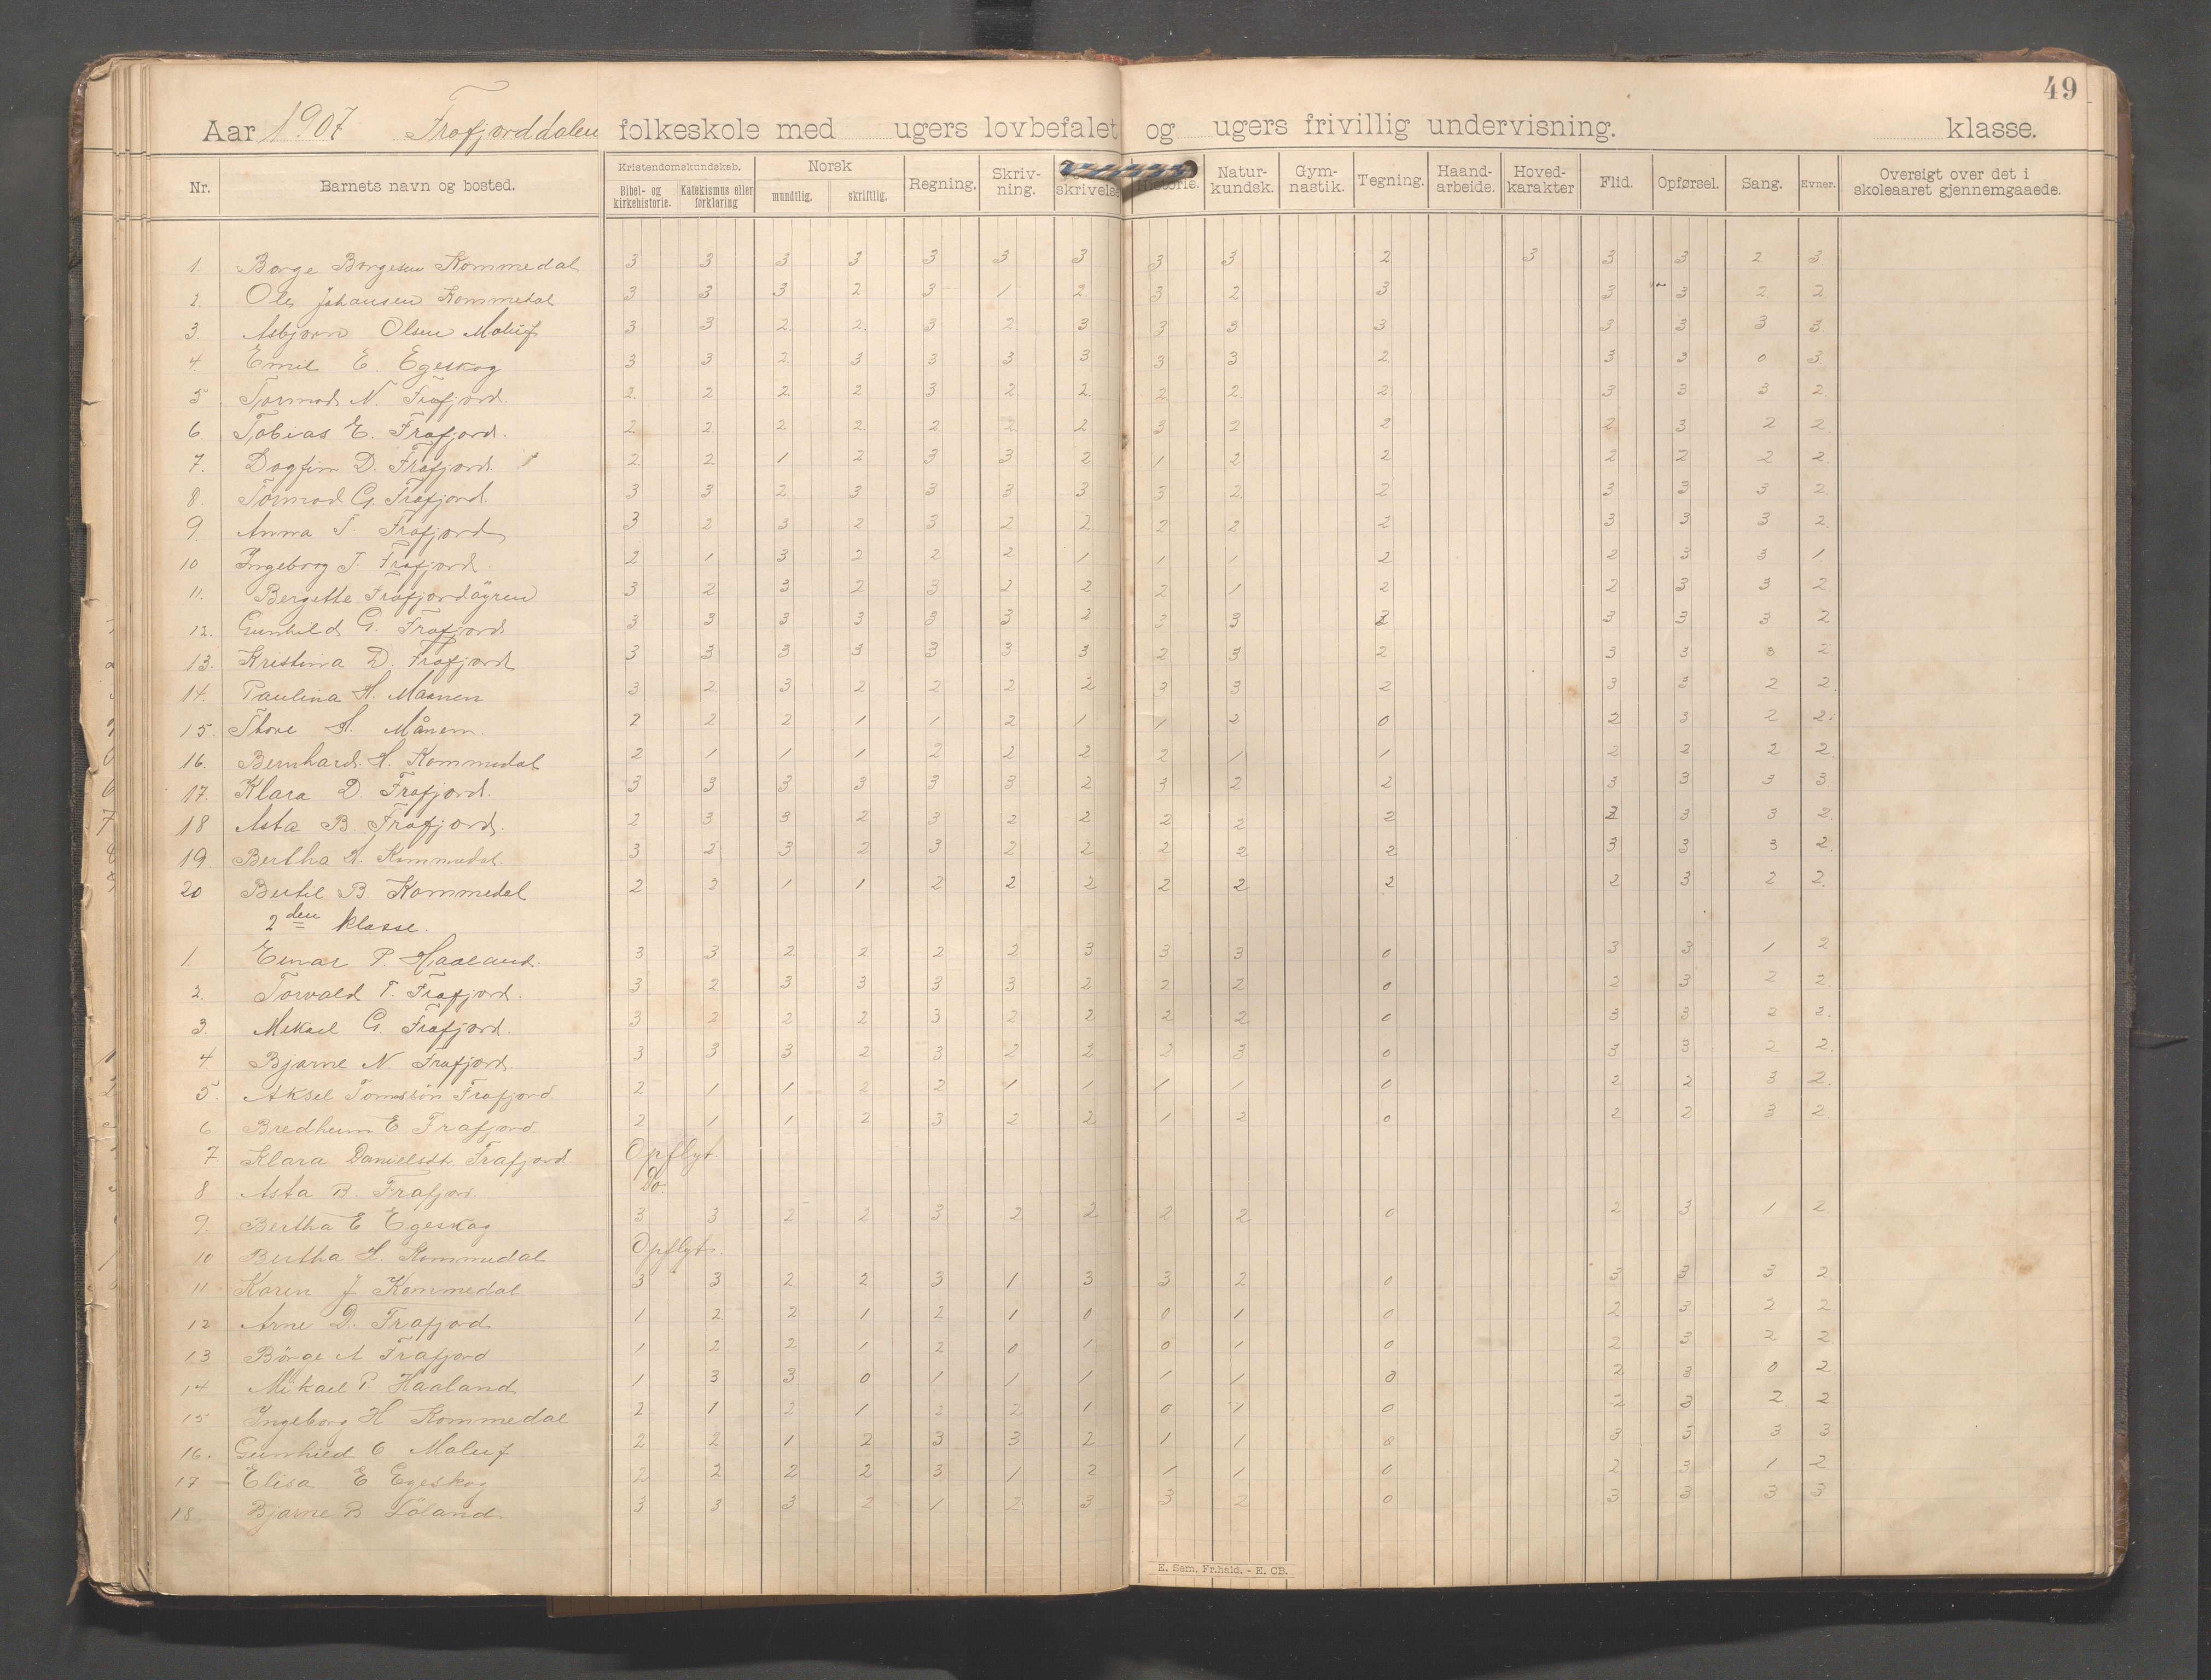 49
Aar 1907 Frafjorddalen folkeskole med ugers lovbefalet og ugers frivillig undervisning. klasse.
Nr. Barnets navn og bosted. Kristendomskundskab. Bibel- og kirkehistorie. Katekismus eller forklaring Norsk mundtlig. skriftlig. Regning. Skriv-ning. skrivelse Historie. Natur-kundsk. Gym-nastik. Tegning. Haand-arbeide. Hoved-karakter Flid. Opførsel. Sang. Evner. Oversigt over det i skoleaaret gjennemgaaede.
1. Borge Borgesen Kommedal 3 3 3 3 3 3 3 3 3 2 3 3 3 2 3
2. Ole Johansen Kommedal 3 3 3 2 3 1 2 3 2 3 3 3 2 2
3. Asbjørn Olsen Maluf 3 3 2 2 3 2 3 3 3 3 3 3 3 3
4. Emil E. Egeskog 3 3 2 3 3 3 3 3 3 2 3 3 0 3
5 Tormod N. Frafjord 2 2 2 2 3 2 2 2 2 2 3 3 3 2
6 Tobias E. Frafjord. 2 2 2 2 2 2 2 3 2 2 2 3 2 2
7. Dagfin D. Frafjord 2 2 1 2 3 3 2 1 2 2 2 2 2 2
8. Tormod G. Frafjord. 3 3 2 3 3 3 3 3 2 2 3 3 3 2
9. Anna T. Frafjord 3 2 3 2 3 2 2 2 2 2 3 3 3 2
10 Ingeborg T. Frafjord. 2 1 3 2 2 2 1 1 1 2 2 3 3 1
11. Bergette Frafjordöyren 3 2 3 2 3 2 2 2 1 2 2 3 3 2
12. Gunhild G. Frafjord 3 3 3 3 3 3 2 3 3 2 3 3 3 2
13. Kristina D. Frafjord 3 3 3 3 3 3 3 2 3 2 3 3 3 2
14. Paulina H. Maanen 3 2 3 2 2 2 2 3 3 2 3 3 2 2
15. Thore H. Månen 2 2 2 1 1 2 1 1 2 0 2 3 2 2
16. Bernhard H. Kommedal 2 1 1 1 2 2 2 2 1 1 2 2 2 2
17. Klara D. Frafjord. 3 3 3 3 3 3 2 3 2 2 3 3 3 3
18 Asta B Frafjord. 2 3 3 2 3 2 2 2 2 2 2 3 3 2
19. Bertha H. Kommedal. 3 2 3 2 3 2 2 2 2 2 3 3 3 2
20 Bertil B. Kommedal 2 2 1 1 2 2 2 2 2 2 2 3 2 2
2den klasse.
1. Einar P. Haaland. 3 3 2 2 2 2 3 3 3 0 3 3 1 2
2. Torvald T. Frafjord. 3 2 3 3 3 3 2 2 2 0 2 3 2 2
3. Mikael G. Frafjord. 3 2 2 2 3 2 2 2 2 0 3 3 2 2
4 Bjarne N. Frafjord 3 3 3 2 3 2 2 2 3 0 3 3 2 2
5. Aksel Tomassön Frafjord 2 1 1 2 2 1 1 1 1 0 2 2 3 2
6 Bredhem E Frafjord. 2 1 1 2 3 2 2 1 2 0 2 2 3 2
7. Klara Danielsdt. Frafjord Opflyt.
8 Asta B. Frafjord. Do.
9. Bertha E Egeskog 3 3 2 2 3 2 2 2 2 0 2 3 1 2
10 Bertha H. Kommedal Opflyt.
11 Karen J Kommedal 3 3 2 2 3 1 3 3 2 0 3 3 3 2
12 Arne D. Frafjord 1 2 2 1 2 1 0 0 1 0 2 3 2 2
13 Börge A Frafjord 1 2 2 1 2 0 1 0 1 0 2 3 2 2
14 Mikael P. Haaland 1 3 3 0 1 1 1 1 1 0 2 3 0 2
15 Ingeborg H Kommedal 2 1 2 1 2 2 1 0 1 0 2 3 2 2
16. Gunhild O Maluf 2 2 1 2 3 3 2 1 1 0 3 3 3 3
17 Elisa E Egeskog 2 2 2 2 3 1 2 1 1 0 2 3 1 2
18. Bjarne B Löland 3 3 3 2 1 2 3 3 2 0 3 3 3 3
E. Sem, Fr.hald. - E. CB.